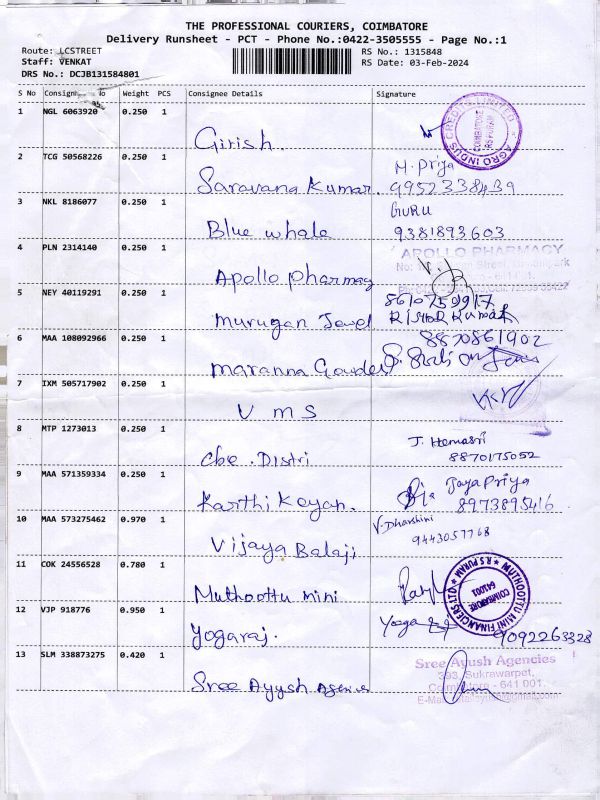 THE PROFESSIONAL COURIERS, COIMBATORE
Delivery Runsheet - PCT - Phone No.:0422-3505555 - Page No.:1
Route: LCSTREET
RS No.: 1315848
Staff: VENKAT
RS Date: 03-Feb-2024
DRS No.: DCJB131584801
S No Consignment No Weight PCS Consignee Details Signature
1 NGL 6063920 0.250 1
Girish.
AGRO INDUS CREDITS LIMITED
COIMBATORE
RS PURAM
2 TCG 50568226 0.250 1
M. Priya
Saravana Kumar. 9952338439
3 NKL 8186077 0.250 1
GURU
Blue whale 9381893603
4 PLN 2314140 0.250 1
APOLLO PHARMACY
Apollo pharmacy
5 NEY 40119291 0.250 1
8610759917
murugan Jewel KISHOR KUMAR
6 MAA 108092966 0.250 1
8870861902
maranna Gowder
7 IXM 505717902 0.250 1
V M S
8 MTP 1273013 0.250 1
J. Hemasri
8870175052
cbe. Distri
9 MAA 571359334 0.250 1
Jaya Priya
8973895416
Karthi Keyan.
10 MAA 573275462 0.970 1
V. Dharshini
9443057768
Vijaya Balaji
11 COK 24556528 0.780 1
Muthoottu mini
MUTHOOTTU MINI FINANCIERS LTD
R S PURAM
COIMBATORE
641001
12 VJP 918776 0.950 1
Yogaraj. 9092263328
13 SLM 338873275 0.420 1
Sree Ayush Agencies
393, Sukrawarpet,
Coimbatore - 641 001.
Sree Ayush Agencies